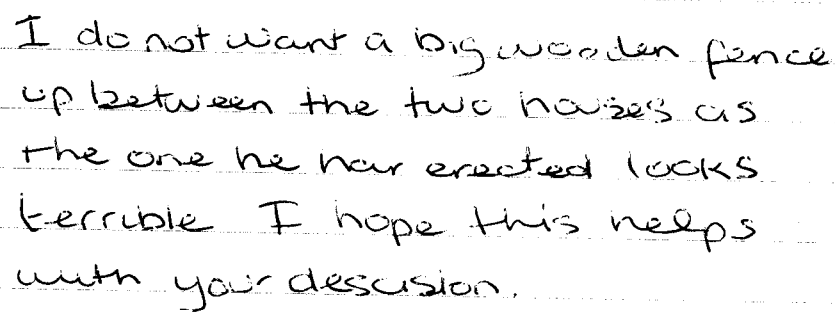 I do not want a big wooden fence
up between the two houses as
the one he has erected looks
terrible I hope this helps
with your descision.